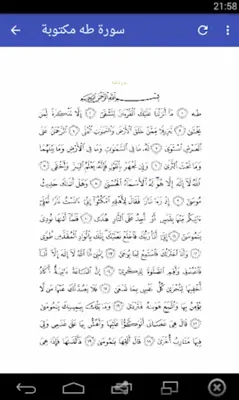 21:58
سورة طه مكتوبة
بِسْمِ اللَّهِ الرَّحْمَٰنِ الرَّحِيمِ
طه ١ مَآ أَنزَلْنَا عَلَيْكَ ٱلْقُرْءَانَ لِتَشْقَىٰٓ ٢ إِلَّا تَذْكِرَةً لِّمَن
يَخْشَىٰ ٣ تَنزِيلًا مِّمَّنْ خَلَقَ ٱلْأَرْضَ وَٱلسَّمَٰوَٰتِ ٱلْعُلَى ٤ ٱلرَّحْمَٰنُ عَلَى
ٱلْعَرْشِ ٱسْتَوَىٰ ٥ لَهُۥ مَا فِى ٱلسَّمَٰوَٰتِ وَمَا فِى ٱلْأَرْضِ وَمَا بَيْنَهُمَا
وَمَا تَحْتَ ٱلثَّرَىٰ ٦ وَإِن تَجْهَرْ بِٱلْقَوْلِ فَإِنَّهُۥ يَعْلَمُ ٱلسِّرَّ وَأَخْفَى ٧
ٱللَّهُ لَآ إِلَٰهَ إِلَّا هُوَ لَهُ ٱلْأَسْمَآءُ ٱلْحُسْنَىٰ ٨ وَهَلْ أَتَىٰكَ حَدِيثُ
مُوسَىٰٓ ٩ إِذْ رَءَا نَارًا فَقَالَ لِأَهْلِهِ ٱمْكُثُوٓا۟ إِنِّىٓ ءَانَسْتُ نَارًا لَّعَلِّىٓ
ءَاتِيكُم مِّنْهَا بِقَبَسٍ أَوْ أَجِدُ عَلَى ٱلنَّارِ هُدًى ١٠ فَلَمَّآ أَتَىٰهَا نُودِىَ
يَٰمُوسَىٰٓ ١١ إِنِّىٓ أَنَا۠ رَبُّكَ فَٱخْلَعْ نَعْلَيْكَ إِنَّكَ بِٱلْوَادِ ٱلْمُقَدَّسِ طُوًى
١٢ وَأَنَا ٱخْتَرْتُكَ فَٱسْتَمِعْ لِمَا يُوحَىٰٓ ١٣ إِنَّنِىٓ أَنَا ٱللَّهُ لَآ إِلَٰهَ إِلَّآ أَنَا۠
فَٱعْبُدْنِى وَأَقِمِ ٱلصَّلَوٰةَ لِذِكْرِىٓ ١٤ إِنَّ ٱلسَّاعَةَ ءَاتِيَةٌ أَكَادُ
أُخْفِيهَا لِتُجْزَىٰ كُلُّ نَفْسٍۭ بِمَا تَسْعَىٰ ١٥ فَلَا يَصُدَّنَّكَ عَنْهَا مَن لَّا
يُؤْمِنُ بِهَا وَٱتَّبَعَ هَوَىٰهُ فَتَرْدَىٰ ١٦ وَمَا تِلْكَ بِيَمِينِكَ يَٰمُوسَىٰ
١٧ قَالَ هِىَ عَصَاىَ أَتَوَكَّؤُا۟ عَلَيْهَا وَأَهُشُّ بِهَا عَلَىٰ غَنَمِى وَلِىَ
فِيهَا مَـَٔارِبُ أُخْرَىٰ ١٨ قَالَ أَلْقِهَا يَٰمُوسَىٰ ١٩ فَأَلْقَىٰهَا فَإِذَا هِىَ